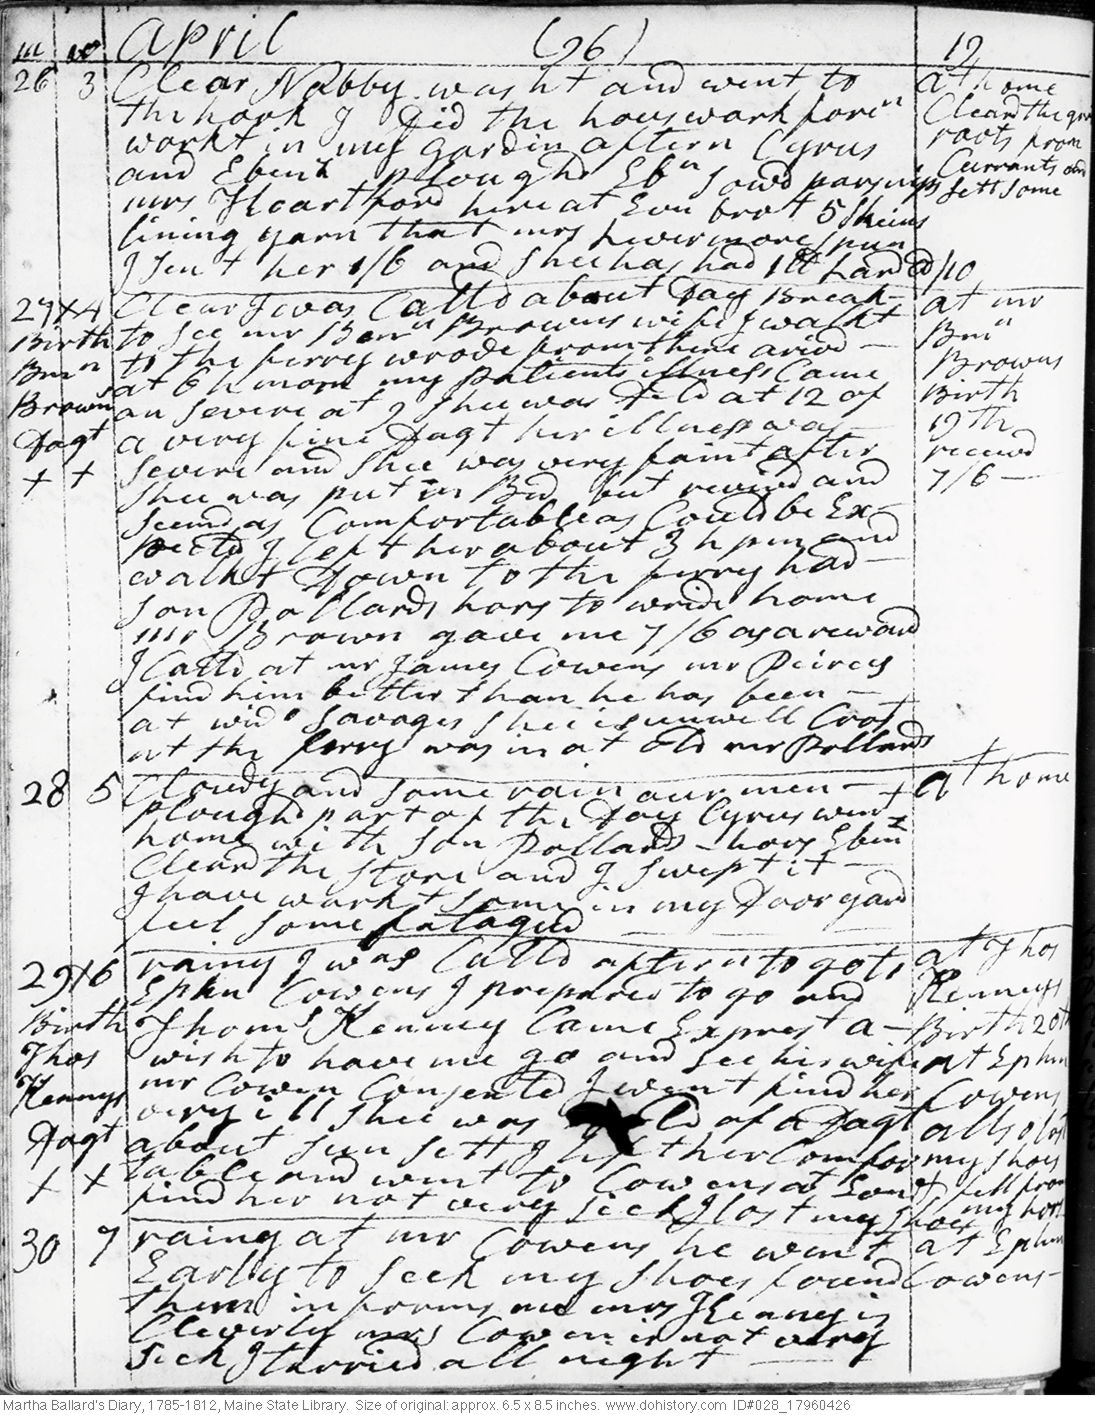 m w April (96) 12
26 3 Clear Nabby washt and went to
the hook I Did the houswork foren
workt in my gardin aftern Cyrus
and Ebenz Ploughd Ebn sowd parsnips
mrs Heartford here at Evn brot 5 Skeins
lining yarn that mrs hevermore spun
I sent her 1/6 and shee has had 1 lb lard @ /10
at home
Cleard the
roots from
Currants and
sett some
27 x 4 Clear I was Calld about Day Break
to See mr Benn Browns wife I walkt
to the ferry wrode from thence arivd
at 6 h morn my patients illness Came
on severe at 9 shee was Deld at 12 of
a very fine Dagt her illness was
severe and shee was very faint after
shee was put in Bed but revivd and
seemd as Comfortable as Could be Ex-
pectd I left her about 3 h pm and
walkt Down to the ferry had
son Pollards hors to wride home
mr Brown gave me 7/6 as a reward
I Calld at mr James Cowens mr Peircs
find him better than he has been
at wido Savages shee is unwell
at the ferry was in at old mr Pollards
Birth
Benn
Browns
Dagt
+ +
at mr
Benn
Browns
Birth
19th
receivd
7/6
28 5 Cloudy and some rain our men
Plough part of the Day Cyrus went
home with son Pollards hors Ebenz
Cleard the store and I swept it
I have workt some in my Door yard
feel some fatagud
at home
29 x 6 rainy I was Calld aftern to go to
Ephm Cowens I prepared to go and
Thoms Kenney Came Express a
wish to have me go and see his wife
mr Cowen Consented I went find her
very ill shee was Deld of a Dagt
about sun sett I left her Comfor
table and went to Cowens at Evn
find her not very sick I lost my shoes
Birth
Thos
Kennys
Dagt
+ +
at Thos
Kenneys
Birth 20th
at Ephm
Cowens
allso lost
my shoes
fell from
my hors
30 7 rainy at mr Cowens he went
Early to seek my shoes found
them informs me mrs Kenney is
Cleverly mrs Cowen is not very
sick I tarried all night
at Ephm
Cowens
Martha Ballard's Diary, 1785-1812, Maine State Library. Size of original: approx. 6.5 x 8.5 inches. www.dohistory.com ID#028_17960426